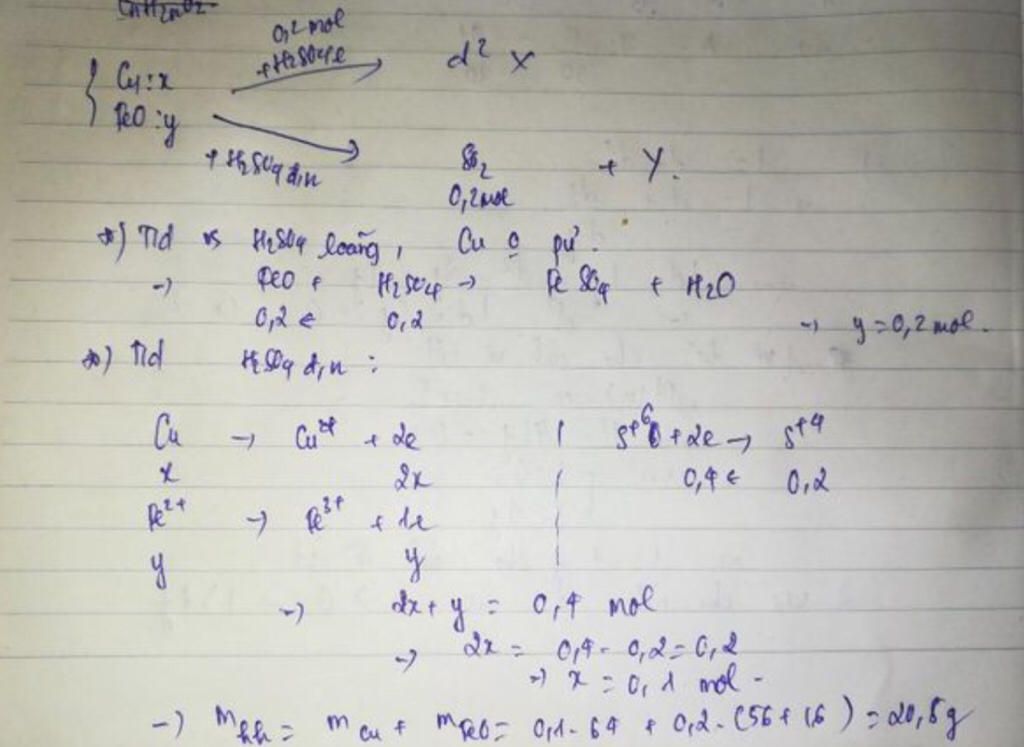 CnH2nO2
0,2 mol
+ H2SO4 l
{ Cu : x
FeO : y
d² X
+ H2SO4 đ,n
SO2 + Y.
0,2 mol
*) Td vs H2SO4 loãng, Cu o pứ.
→ FeO + H2SO4 → FeSO4 + H2O
0,2 ← 0,2 → y = 0,2 mol.
*) Td H2SO4 đ,n :
Cu → Cu²⁺ + 2e | S⁺⁶ + 2e → S⁺⁴
x 2x | 0,4 ← 0,2
Fe²⁺ → Fe³⁺ + 1e
y y
→ 2x + y = 0,4 mol
→ 2x = 0,4 - 0,2 = 0,2
→ x = 0,1 mol -
→ m hh = m Cu + m FeO = 0,1 . 64 + 0,2 . (56 + 16) = 20,8g